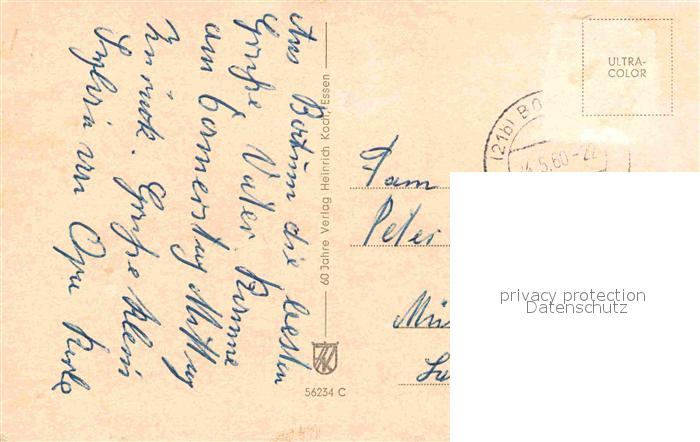 Aus Bochum die besten
Grüße Vater. Komme
am Donnerstag Mittag
zurück. Grüße klein
Sylvia von Opa
60 Jahre Verlag Heinrich Koch, Essen
56234 C
ULTRA-
COLOR
(21b) BO
4.5.60-22
Fam
Peter
Mün
privacy protection
Datenschutz